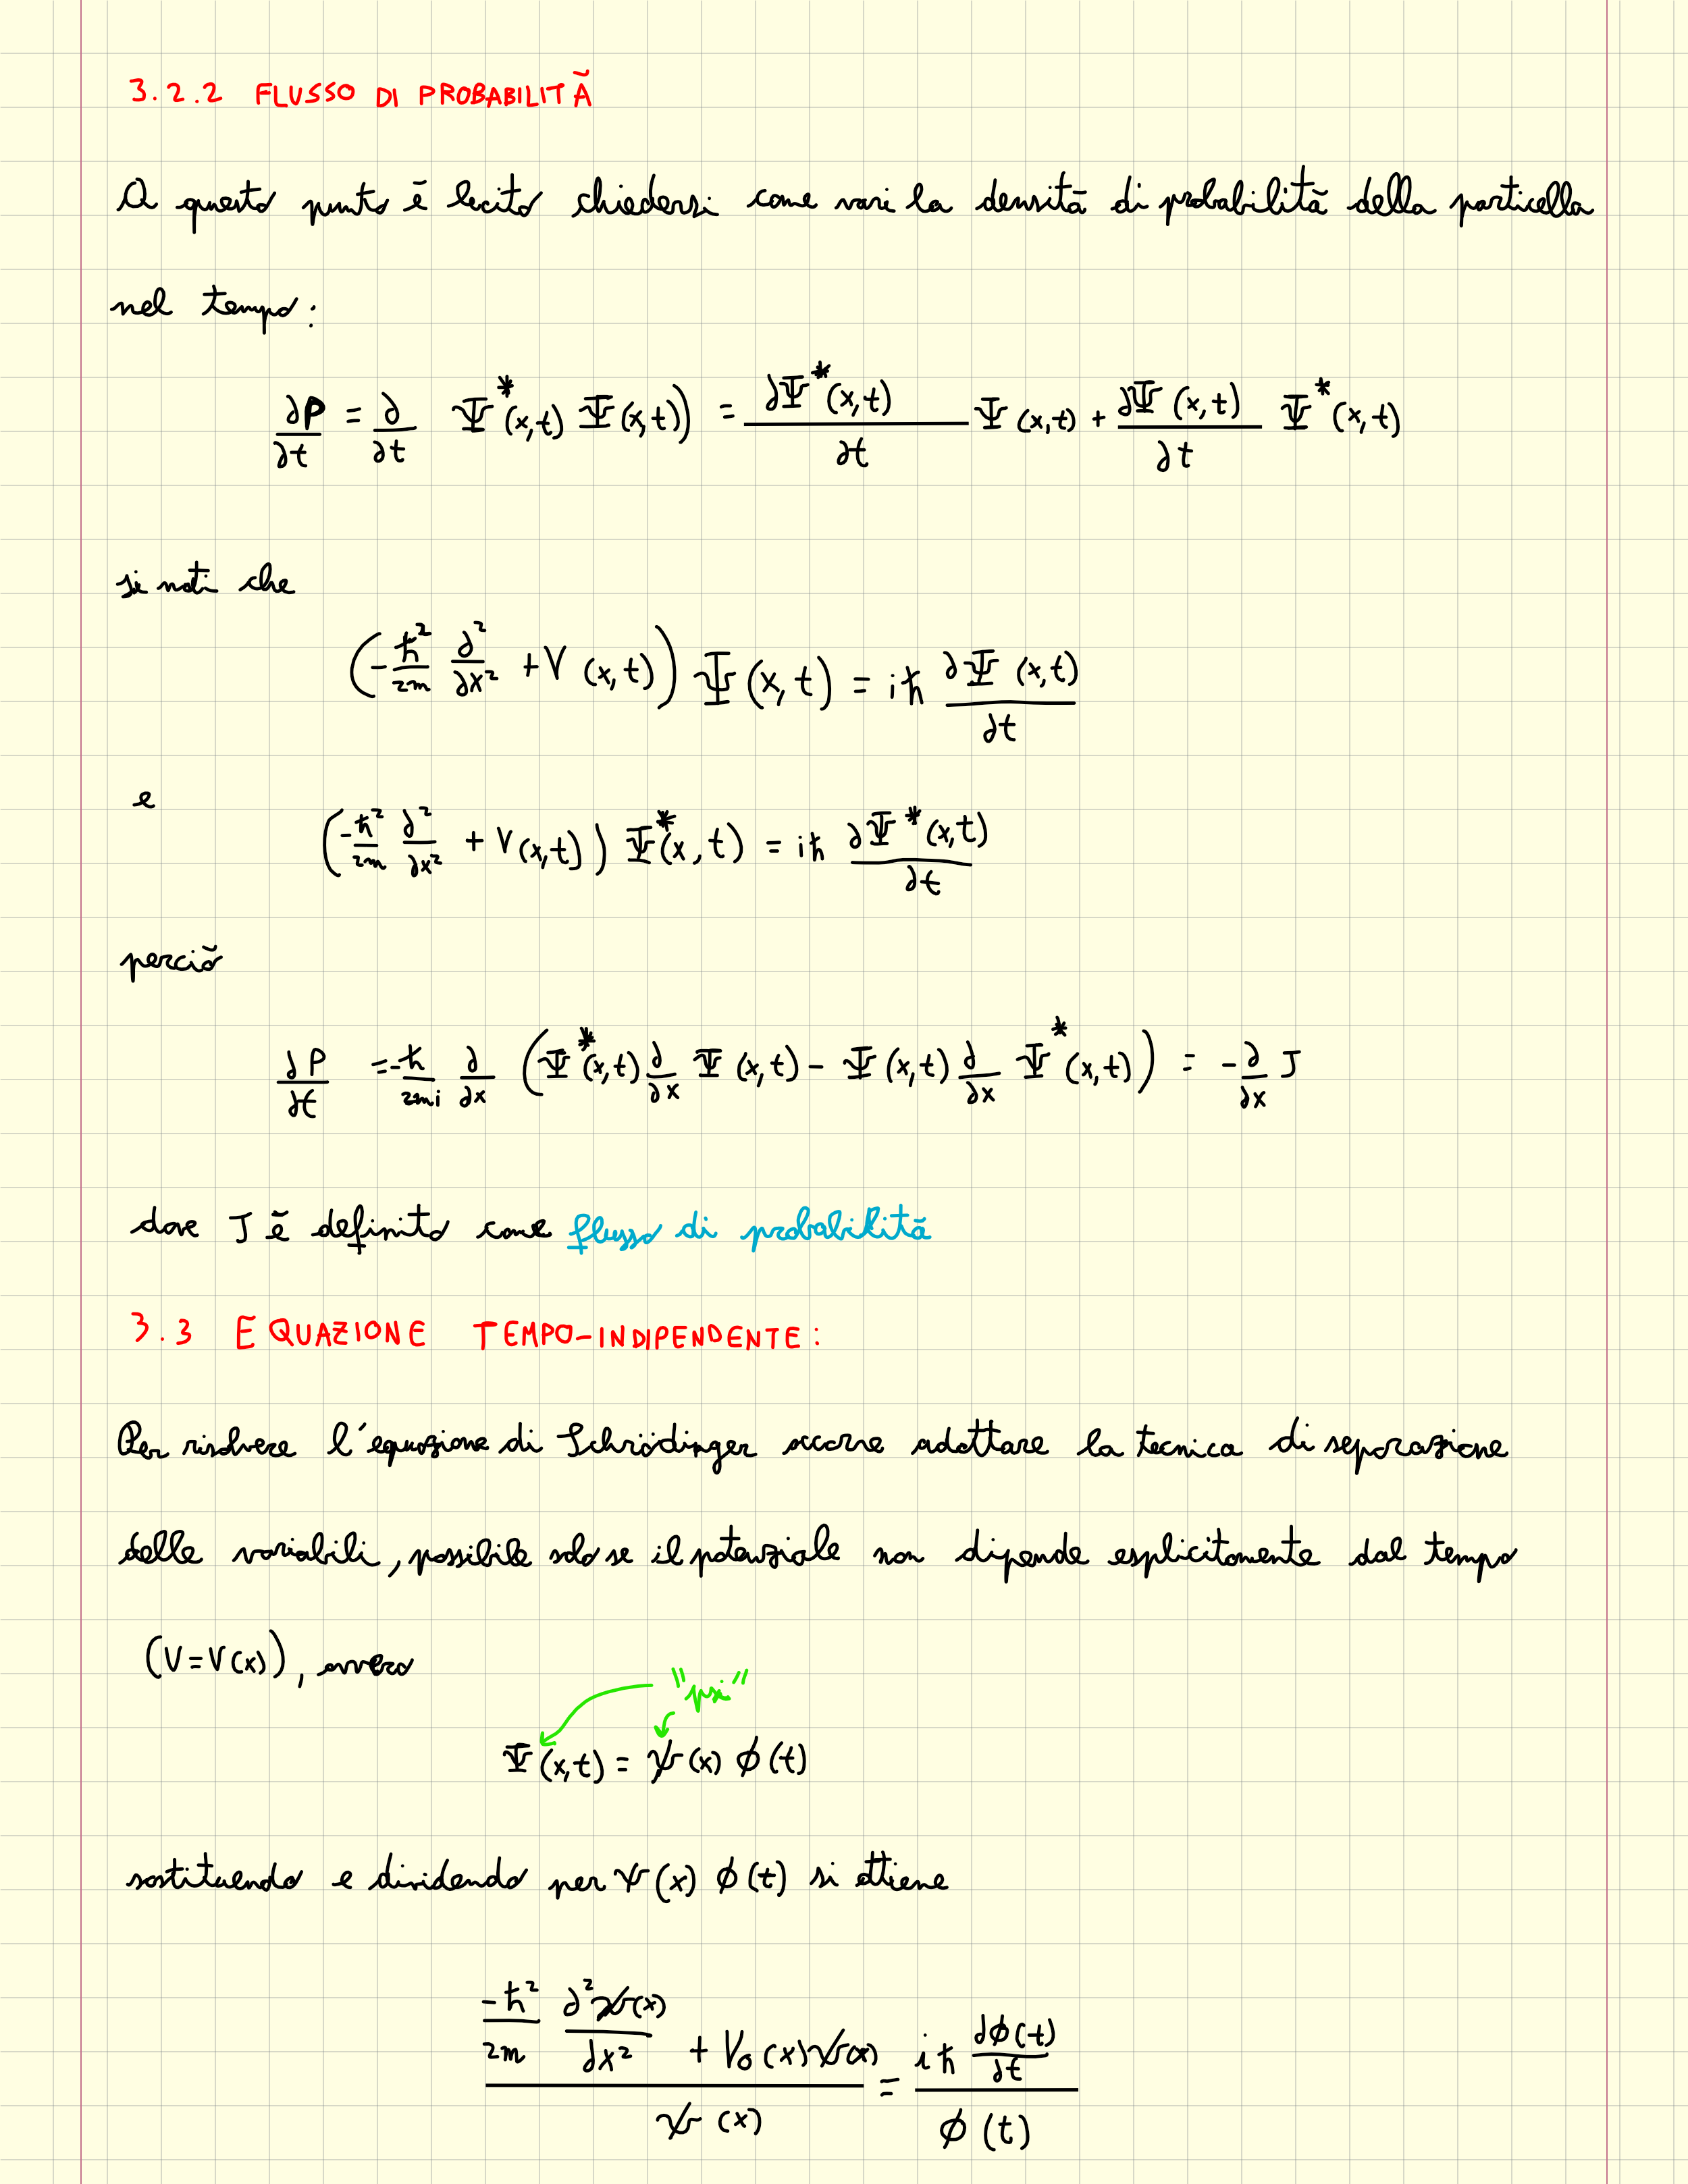 3.2.2 FLUSSO DI PROBABILITÀ
A questo punto è lecito chiedersi come vari la densità di probabilità della particella
nel tempo:
∂P/∂t = ∂/∂t Ψ*(x,t) Ψ(x,t)) = ∂Ψ*(x,t)/∂t Ψ(x,t) + ∂Ψ(x,t)/∂t Ψ*(x,t)
si noti che
(-ħ²/2m ∂²/∂x² + V(x,t)) Ψ(x,t) = iħ ∂Ψ(x,t)/∂t
e
(-ħ²/2m ∂²/∂x² + V(x,t)) Ψ*(x,t) = iħ ∂Ψ*(x,t)/∂t
perciò
∂P/∂t = -ħ/2mi ∂/∂x (Ψ*(x,t) ∂/∂x Ψ(x,t) - Ψ(x,t) ∂/∂x Ψ*(x,t)) = -∂/∂x J
dove J è definito come flusso di probabilità
3.3 EQUAZIONE TEMPO-INDIPENDENTE:
Per risolvere l'equazione di Schrödinger occorre adottare la tecnica di separazione
delle variabili, possibile solo se il potenziale non dipende esplicitamente dal tempo
(V=V(x)), ovvero
"psi"
Ψ(x,t) = ψ(x) ϕ(t)
sostituendo e dividendo per ψ(x) ϕ(t) si ottiene
(-ħ²/2m ∂²ψ(x)/∂x² + V₀(x)ψ(x))/ψ(x) = (iħ ∂ϕ(t)/∂t)/ϕ(t)